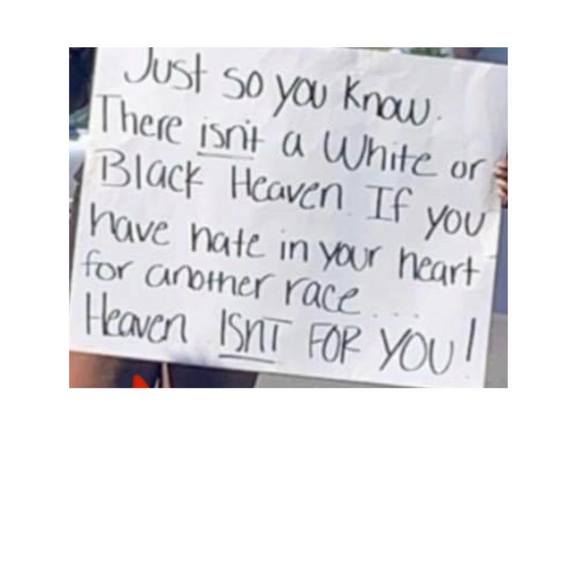 Just so you know.
There isn't a White or
Black Heaven If you
have hate in your heart
for another race...
Heaven ISNT FOR YOU!